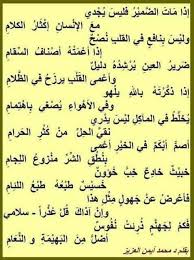 إذا مَاتَ الضَّمِيْرُ فَلَيسَ يُجْدِي
مَعَ الإنْسَانِ إكْثَارُ الكَلامِ
وليسَ بنافِعٍ في القَلْبِ نُصْحٌ
إذا أعْمَتْهُ أصْنَافُ السَّقَامِ
ضَرِيرُ العَينِ يُرْشِدُهُ دَلِيلٌ
وأعْمَى القَلْبِ يرزحُ في الظَّلامِ
إذا ذَكَّرْتَهُ باللهِ يلهو
وفي الأهْوَاءِ يُصْغِي باهْتِمَامِ
يُخَلِّطُ في المآكِلِ ليْسَ يدْري
نقيَّ الحِلِّ منْ كَدَرِ الحَرامِ
أصمُّ أبْكَمٌ في الخَيْرِ أعمى
بنُطْقِ الشَّرِّ مَنْزوعُ اللجَامِ
خبيثٌ خادِعٌ خبٌّ خَؤونٌ
خَسيْسُ الطَّبْعِ طَبْعُ اللئامِ
فأعْرِضْ عنْ جَهُولٍ مثْلِ هذا
وإنْ آذاكَ قُلْ عُذْراً - سلامي
فَكَمْ لِجَهَنَّمٍ ذُرِئَتْ نُفُوسٌ
أضَلُّ منَ البَهِيْمَةِ والنَّعَامِ
بقلم د محمد أيمن العزيز